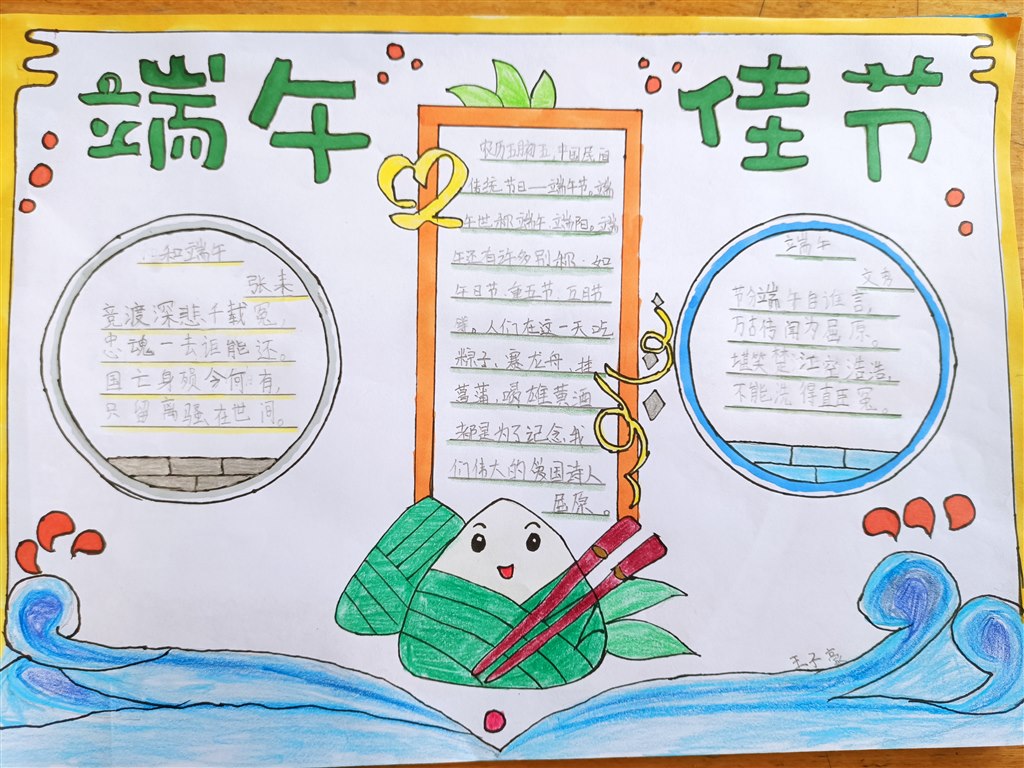 端午佳节
和端午
张耒
竞渡深悲千载冤，
忠魂一去讵能还。
国亡身殒今何有，
只留离骚在世间。
农历五月初五，中国民间
传统节日——端午节。端
午也称端午，端阳。端
午还有许多别称，如
午日节、重五节、五月节
等。人们在这一天吃
粽子、赛龙舟、挂
菖蒲，喝雄黄酒
都是为了记念我
们伟大的爱国诗人
屈原。
端午
文秀
节分端午自谁言，
万古传闻为屈原。
堪笑楚江空浩浩，
不能洗得直臣冤。
王子